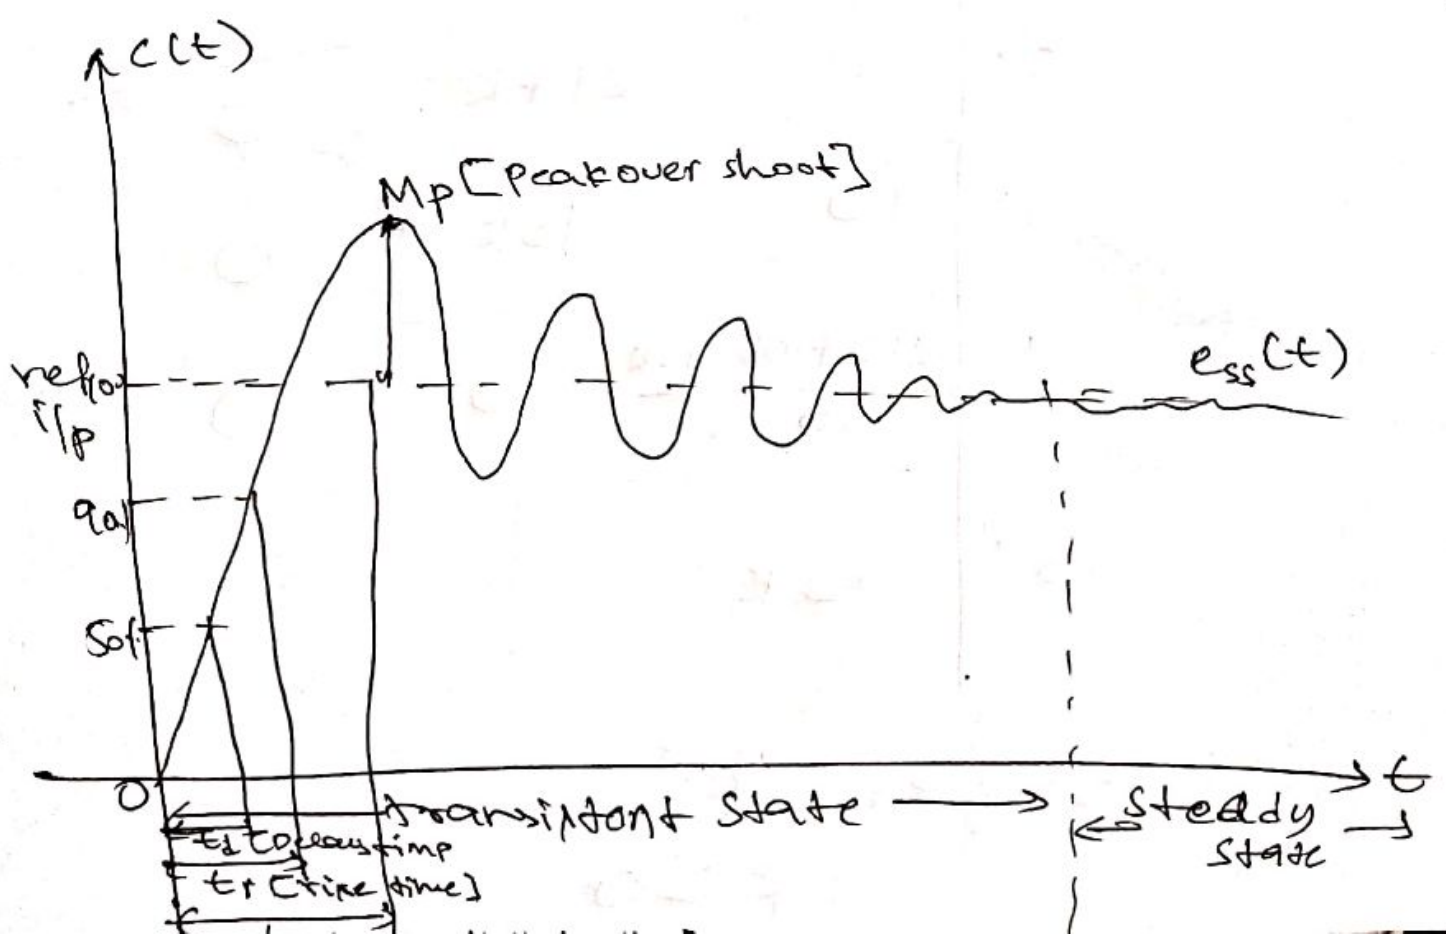 c(t)
Mp [Peakover shoot]
ess(t)
i/p
90%
50%
0
t
transistont state
steady
state
td [Delay time
tr [rise time]